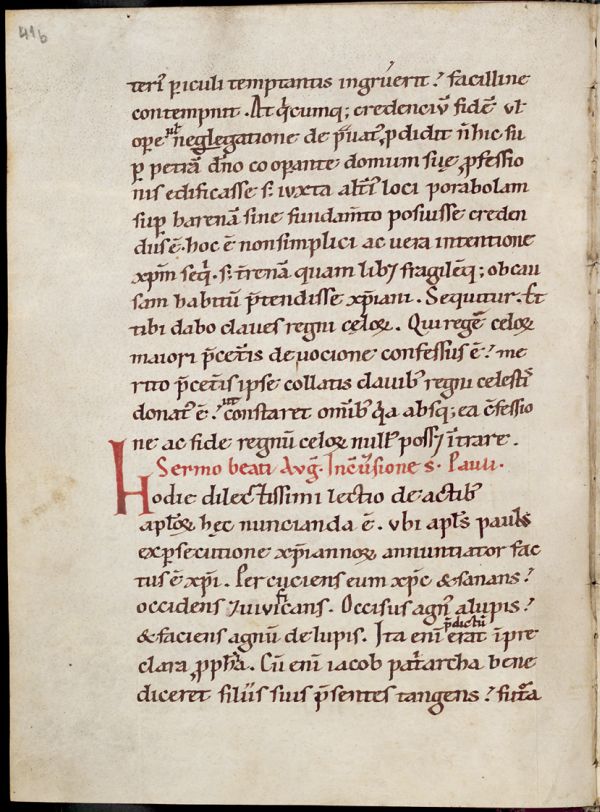 41b
teri᷑ ꝑiculi temptantis ingruerit? facilline
contempnit. At q̄cumq; credenciū fidē vl̄
opere ut neglegatione depͣuat᷑, ꝓdidit n̄ hic su
ꝑ petrā dn̄o cooꝑante domum suę ꝓfessio
nis edificasse s; iuxta alt᷑i loci porabolam
suꝑ harenā sine fundam̄to posuisse creden
dus ē. hoc ē non simplici ac uera intentione
xp̄m seq᷑. s; t᷑renā quam libꝫ fragilēq; ob cau
sam habitū p̄tendisse xp̄iani. Sequitur. Et
tibi dabo claues regni cęloꝝ. Qui regē celoꝝ
maiori p̄ cet᷑is deuocione confessus ē? me
rito p̄ cet᷑is ipse collatis clauib᷑ regni celesti᷑
donat᷑ ē? ut constaret om̄ib᷑ q̄a absq; ea c̄fessio
ne ac fide regnū celoꝝ null᷑ possꝫ īt᷑rare.
Sermo beati Avḡ. In c̄u᷑sione s̄. Pauli.
Hodie dilectissimi lectio de actib᷑
apl̄oꝝ hęc nuncianda ē. vbi apl̄s paul᷑s
ex ꝑsecutione xp̄iannoꝝ annuntiator fac
tus ē xp̄i. Percuciens eum xp̄c & sanans?
occidens ⁊ uiuificans. Occisus agn᷑ a lupis?
& faciens agnū de lupis. Ita eni᷑ p̄dictū erat ī pre
clara ꝓph̄a. Cū eni᷑ iacob pat᷑archa bene
diceret filiis suis p̄sentes tangens? futͣa